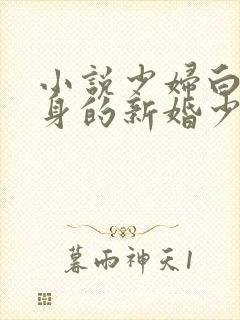 小說少婦白
身的新婚少
暮雨神天1